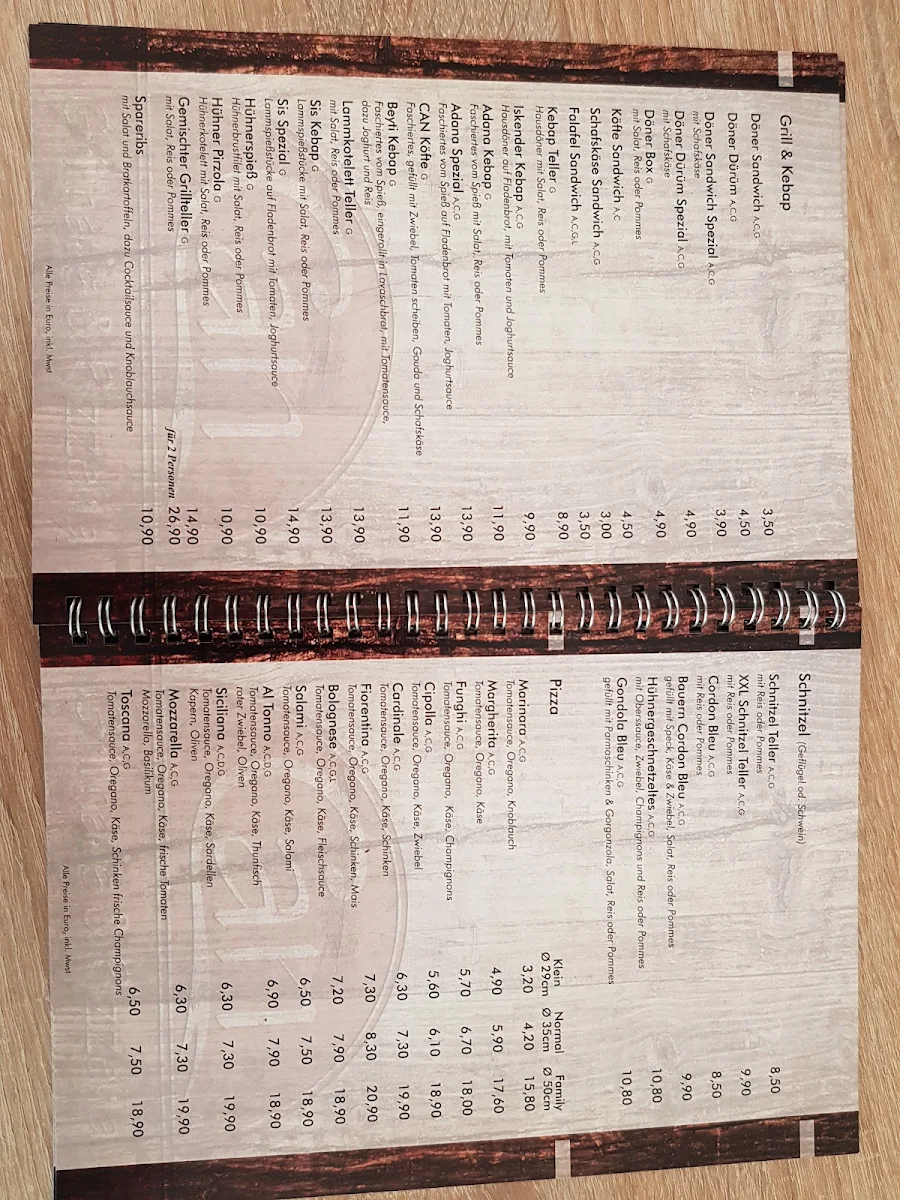 Grill & Kebap
Döner Sandwich A,C,G 3,50
Döner Dürüm A,C,G 4,50
Döner Sandwich Spezial A,C,G 3,90
mit Schafskäse
Döner Dürüm Spezial A,C,G 4,90
mit Schafskäse
Döner Box G 4,90
mit Salat, Reis oder Pommes
Köfte Sandwich A,C 4,50
Schafskäse Sandwich A,C,G 3,00
Falafel Sandwich A,C,G,L 3,50
Kebap Teller G 8,90
Hausdöner mit Salat, Reis oder Pommes
Iskender Kebap A,C,G 9,90
Hausdöner auf Fladenbrot, mit Tomaten und Joghurtsauce
Adana Kebap G 11,90
Faschiertes vom Spieß mit Salat, Reis oder Pommes
Adana Spezial A,C,G 13,90
Faschiertes vom Spieß auf Fladenbrot mit Tomaten, Joghurtsauce
CAN Köfte G 13,90
Faschiertes, gefüllt mit Zwiebel, Tomaten scheiben, Gouda und Schafskäse
Beyti Kebap G 11,90
Faschiertes vom Spieß, eingerollt in Lavaschbrot, mit Tomatensauce,
dazu Joghurt und Reis
Lammkotelett Teller G 13,90
mit Salat, Reis oder Pommes
Sis Kebap G 13,90
Lammspießstücke mit Salat, Reis oder Pommes
Sis Spezial G 14,90
Lammspießstücke auf Fladenbrot mit Tomaten, Joghurtsauce
Hühnerspieß G 10,90
Hühnerbrustfilet mit Salat, Reis oder Pommes
Hühner Pirzola G 10,90
Hühnerkotelett mit Salat, Reis oder Pommes
Gemischter Grillteller G 14,90
mit Salat, Reis oder Pommes für 2 Personen 26,90
Spareribs 10,90
mit Salat und Bratkartoffeln, dazu Cocktailsauce und Knoblauchsauce
Alle Preise in Euro, inkl. Mwst
Schnitzel (Geflügel od. Schwein)
Schnitzel Teller A,C,G 8,50
mit Reis oder Pommes
XXL Schnitzel Teller A,C,G 9,90
mit Reis oder Pommes
Cordon Bleu A,C,G 8,50
mit Reis oder Pommes
Bauern Cordon Bleu A,C,G 9,90
gefüllt mit Speck, Käse & Zwiebel, Salat, Reis oder Pommes
Hühnergeschnetzeltes A,C,G 10,80
mit Oberssauce, Zwiebel, Champignons und Reis oder Pommes
Gondola Bleu A,C,G 10,80
gefüllt mit Parmaschinken & Gorgonzola, Salat, Reis oder Pommes
Pizza Klein Normal Family
Ø 29cm Ø 35cm Ø 50cm
Marinara A,C,G 3,20 4,20 15,80
Tomatensauce, Oregano, Knoblauch
Margherita A,C,G 4,90 5,90 17,60
Tomatensauce, Oregano, Käse
Funghi A,C,G 5,70 6,70 18,00
Tomatensauce, Oregano, Käse, Champignons
Cipolla A,C,G 5,60 6,10 18,90
Tomatensauce, Oregano, Käse, Zwiebel
Cardinale A,C,G 6,30 7,30 19,90
Tomatensauce, Oregano, Käse, Schinken
Fiorentina A,C,G 7,30 8,30 20,90
Tomatensauce, Oregano, Käse, Schinken, Mais
Bolognese A,C,G,L 7,20 7,90 18,90
Tomatensauce, Oregano, Käse, Fleischsauce
Salami A,C,G 6,50 7,50 18,90
Tomatensauce, Oregano, Käse, Salami
Al Tonno A,C,D,G 6,90 7,90 18,90
Tomatensauce, Oregano, Käse, Thunfisch
roter Zwiebel, Oliven
Siciliana A,C,D,G 6,30 7,30 19,90
Tomatensauce, Oregano, Käse, Sardellen
Kapern, Oliven
Mozzarella A,C,G 6,30 7,30 19,90
Tomatensauce, Oregano, Käse, frische Tomaten
Mozzarella, Basilikum
Toscana A,C,G 6,50 7,50 18,90
Tomatensauce, Oregano, Käse, Schinken frische Champignons
Alle Preise in Euro, inkl. Mwst